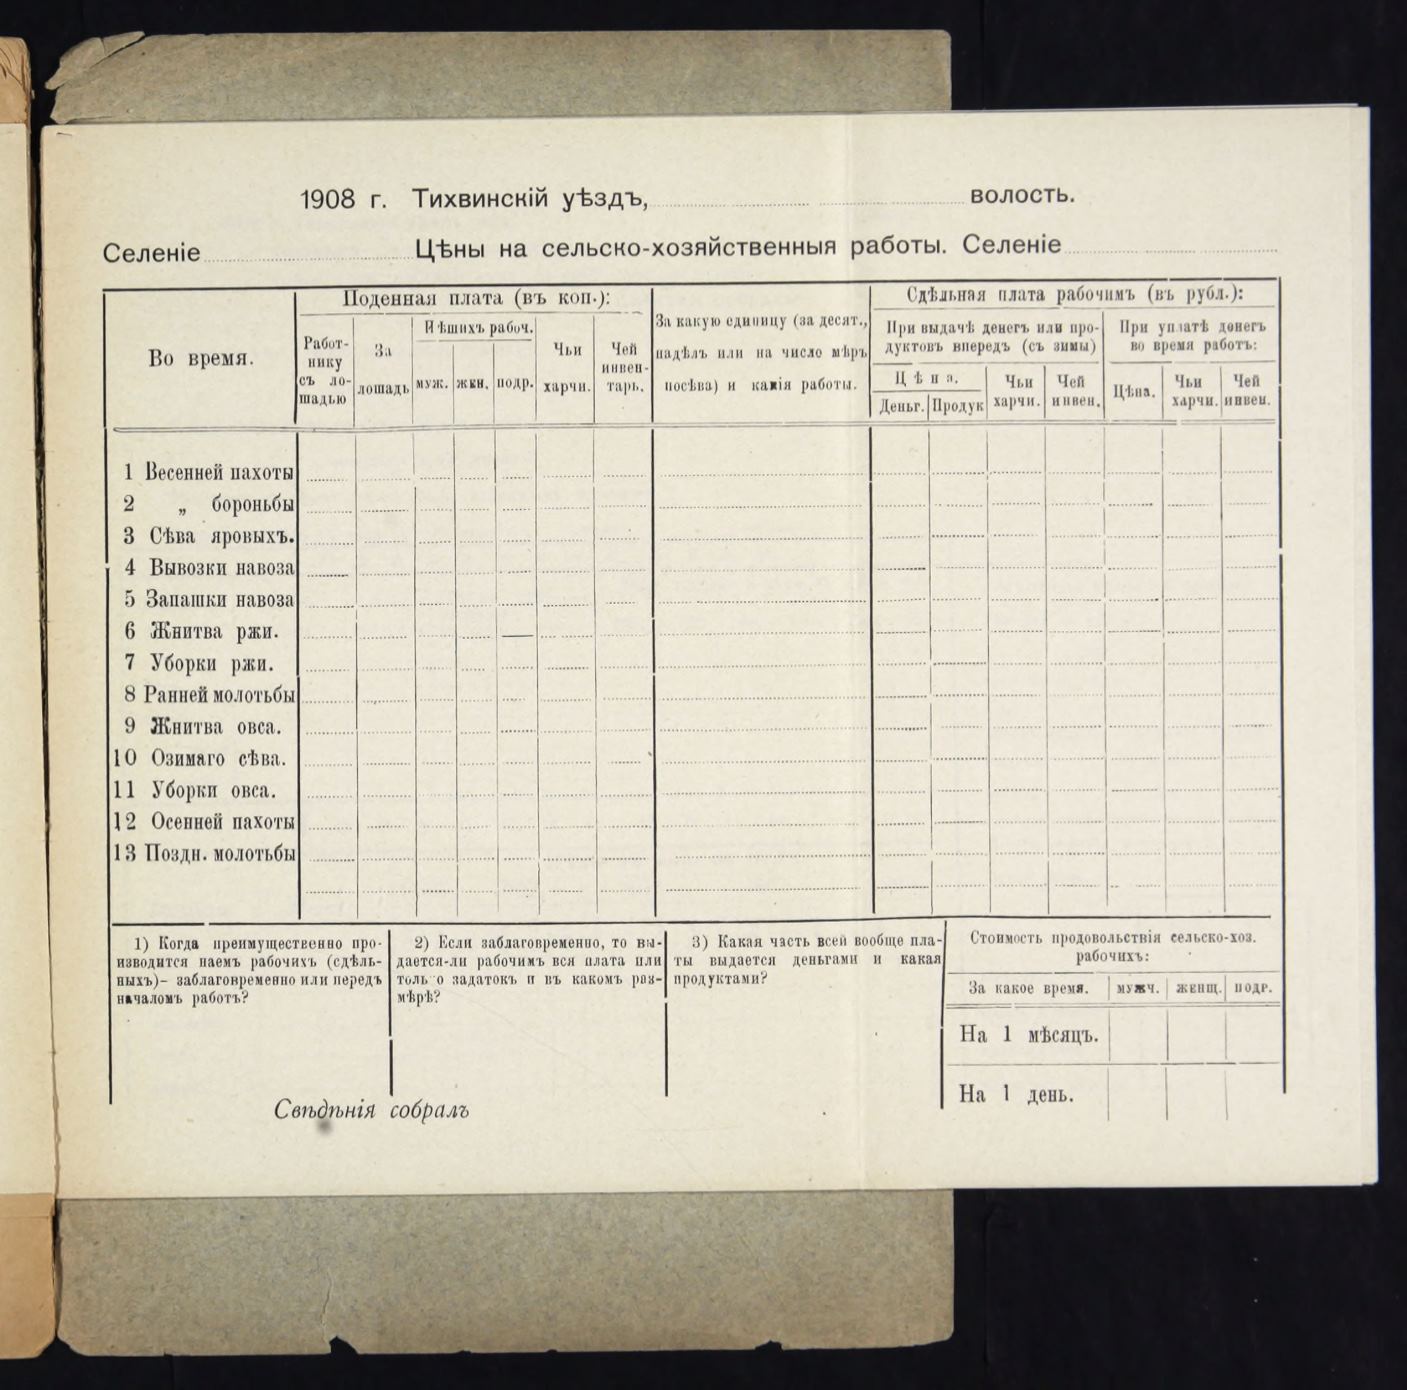 1908 г. Тихвинскій уѣздъ, волость.
Селеніе Цѣны на сельско-хозяйственныя работы. Селеніе
Во время.
Поденная плата (въ коп.):
Работ-
нику
съ ло-
шадью
За
лошадь
Пѣшихъ рабоч.
муж. жен. подр.
Чьи
харчи.
Чей
инвен-
тарь.
За какую единицу (за десят.,
надѣлъ или на число мѣръ
посѣва) и какія работы.
Сдѣльная плата рабочимъ (въ рубл.):
При выдачѣ денегъ или про-
дуктовъ впередъ (съ зимы)
Цѣна.
Деньг. Продук
Чьи
харчи.
Чей
инвен.
При уплатѣ денегъ
во время работъ:
Цѣна.
Чьи
харчи.
Чей
инвен.
1 Весенней пахоты
2 „ бороньбы
3 Сѣва яровыхъ.
4 Вывозки навоза
5 Запашки навоза
6 Жнитва ржи.
7 Уборки ржи.
8 Ранней молотьбы
9 Жнитва овса.
10 Озимаго сѣва.
11 Уборки овса.
12 Осенней пахоты
13 Поздн. молотьбы
1) Когда преимущественно про-
изводится наемъ рабочихъ (сдѣль-
ныхъ)- заблаговременно или передъ
началомъ работъ?
2) Если заблаговременно, то вы-
дается-ли рабочимъ вся плата или
только задатокъ и въ какомъ раз-
мѣрѣ?
3) Какая часть всей вообще пла-
ты выдается деньгами и какая
продуктами?
Стоимость продовольствія сельско-хоз.
рабочихъ:
За какое время. мужч. женщ. подр.
На 1 мѣсяцъ.
На 1 день.
Свѣдѣнія собралъ